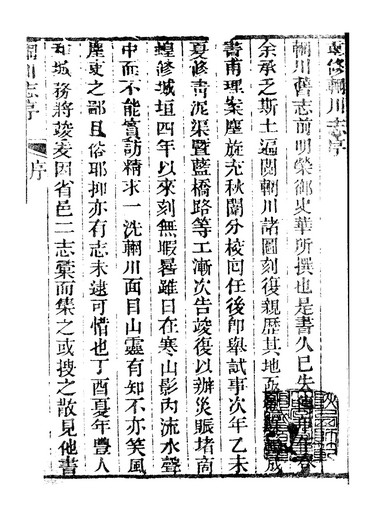 重修輞川志序
輞川舊志前明榮御史華所撰也是書久已失傳
余承乏斯土遍閱輞川諸圖刻復親歷其地
書甫理案塵旋充秋闈分校囘任後卽舉試事次年乙未
夏修青泥渠暨藍橋路等工漸次告竣復以辦災賑堵商
煌修城垣四年以來刻無暇晷雖日在寒山影內流水聲
中而不能質訪精求一洗輞川面目山靈有知不亦笑風
塵吏之鄙且俗耶抑亦有志未逮可惜也丁酉夏年豐人
城務將竣爰因省邑二志彙而集之或搜之散見他書
輞川志序
序